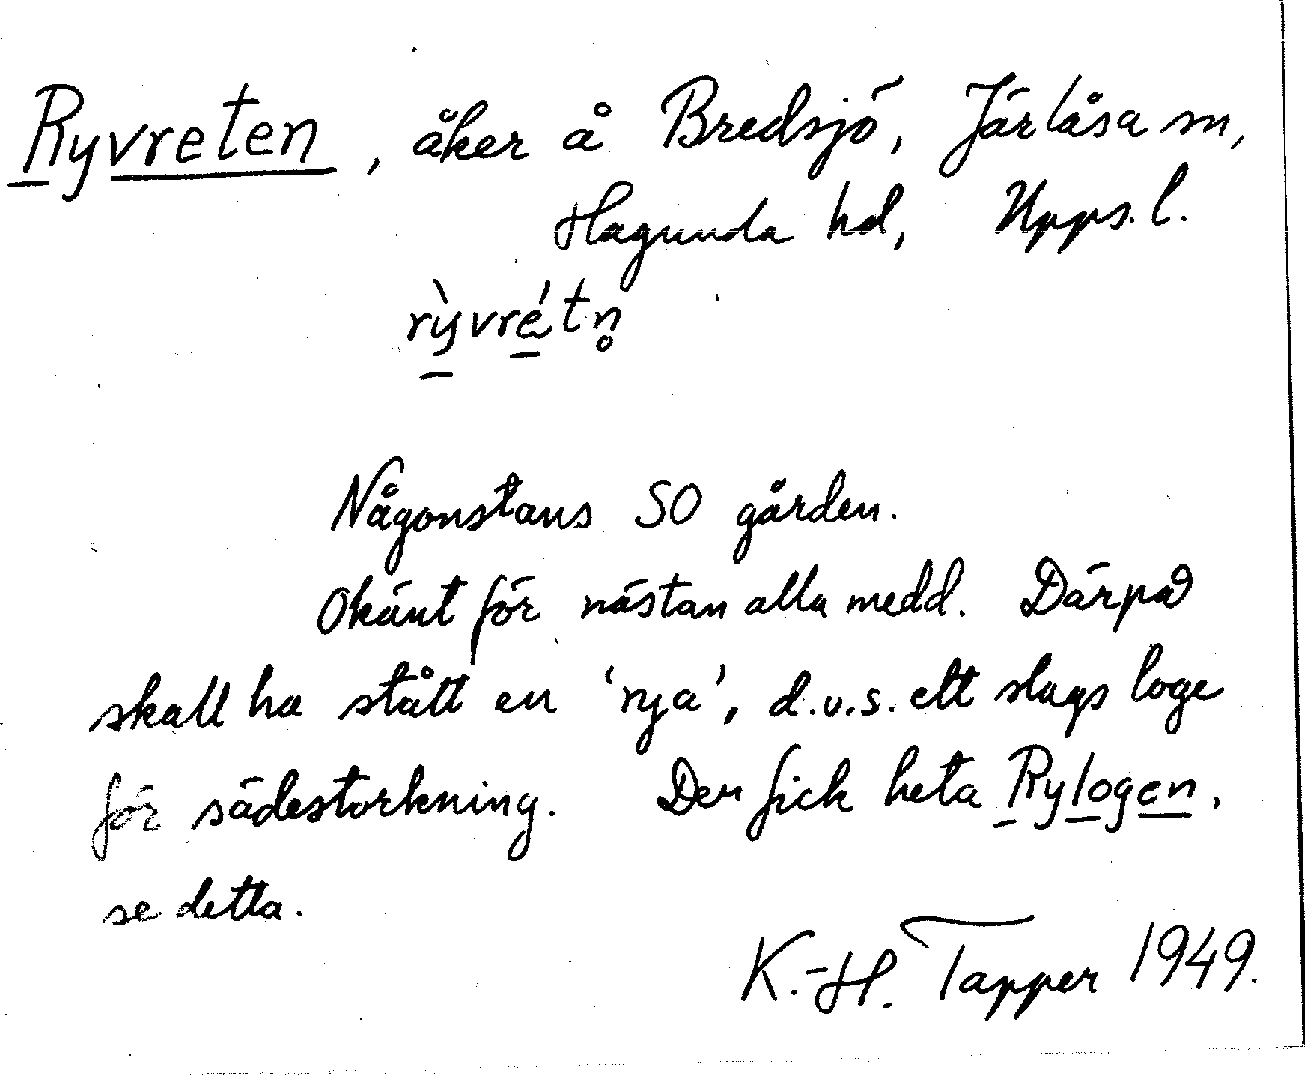 Ryvreten, åker å Bredsjö, Järlåsa sn,
Hagunda hd, Upps. l.
rỳvrétn̥
Någonstans SO gården.
Okänt för nästan alla medd. Därpå
skall ha stått en 'rya', d.v.s. ett slags loge
för sädestorkning. Den fick heta Rylogen,
se detta.
K.-H. Tapper 1949.